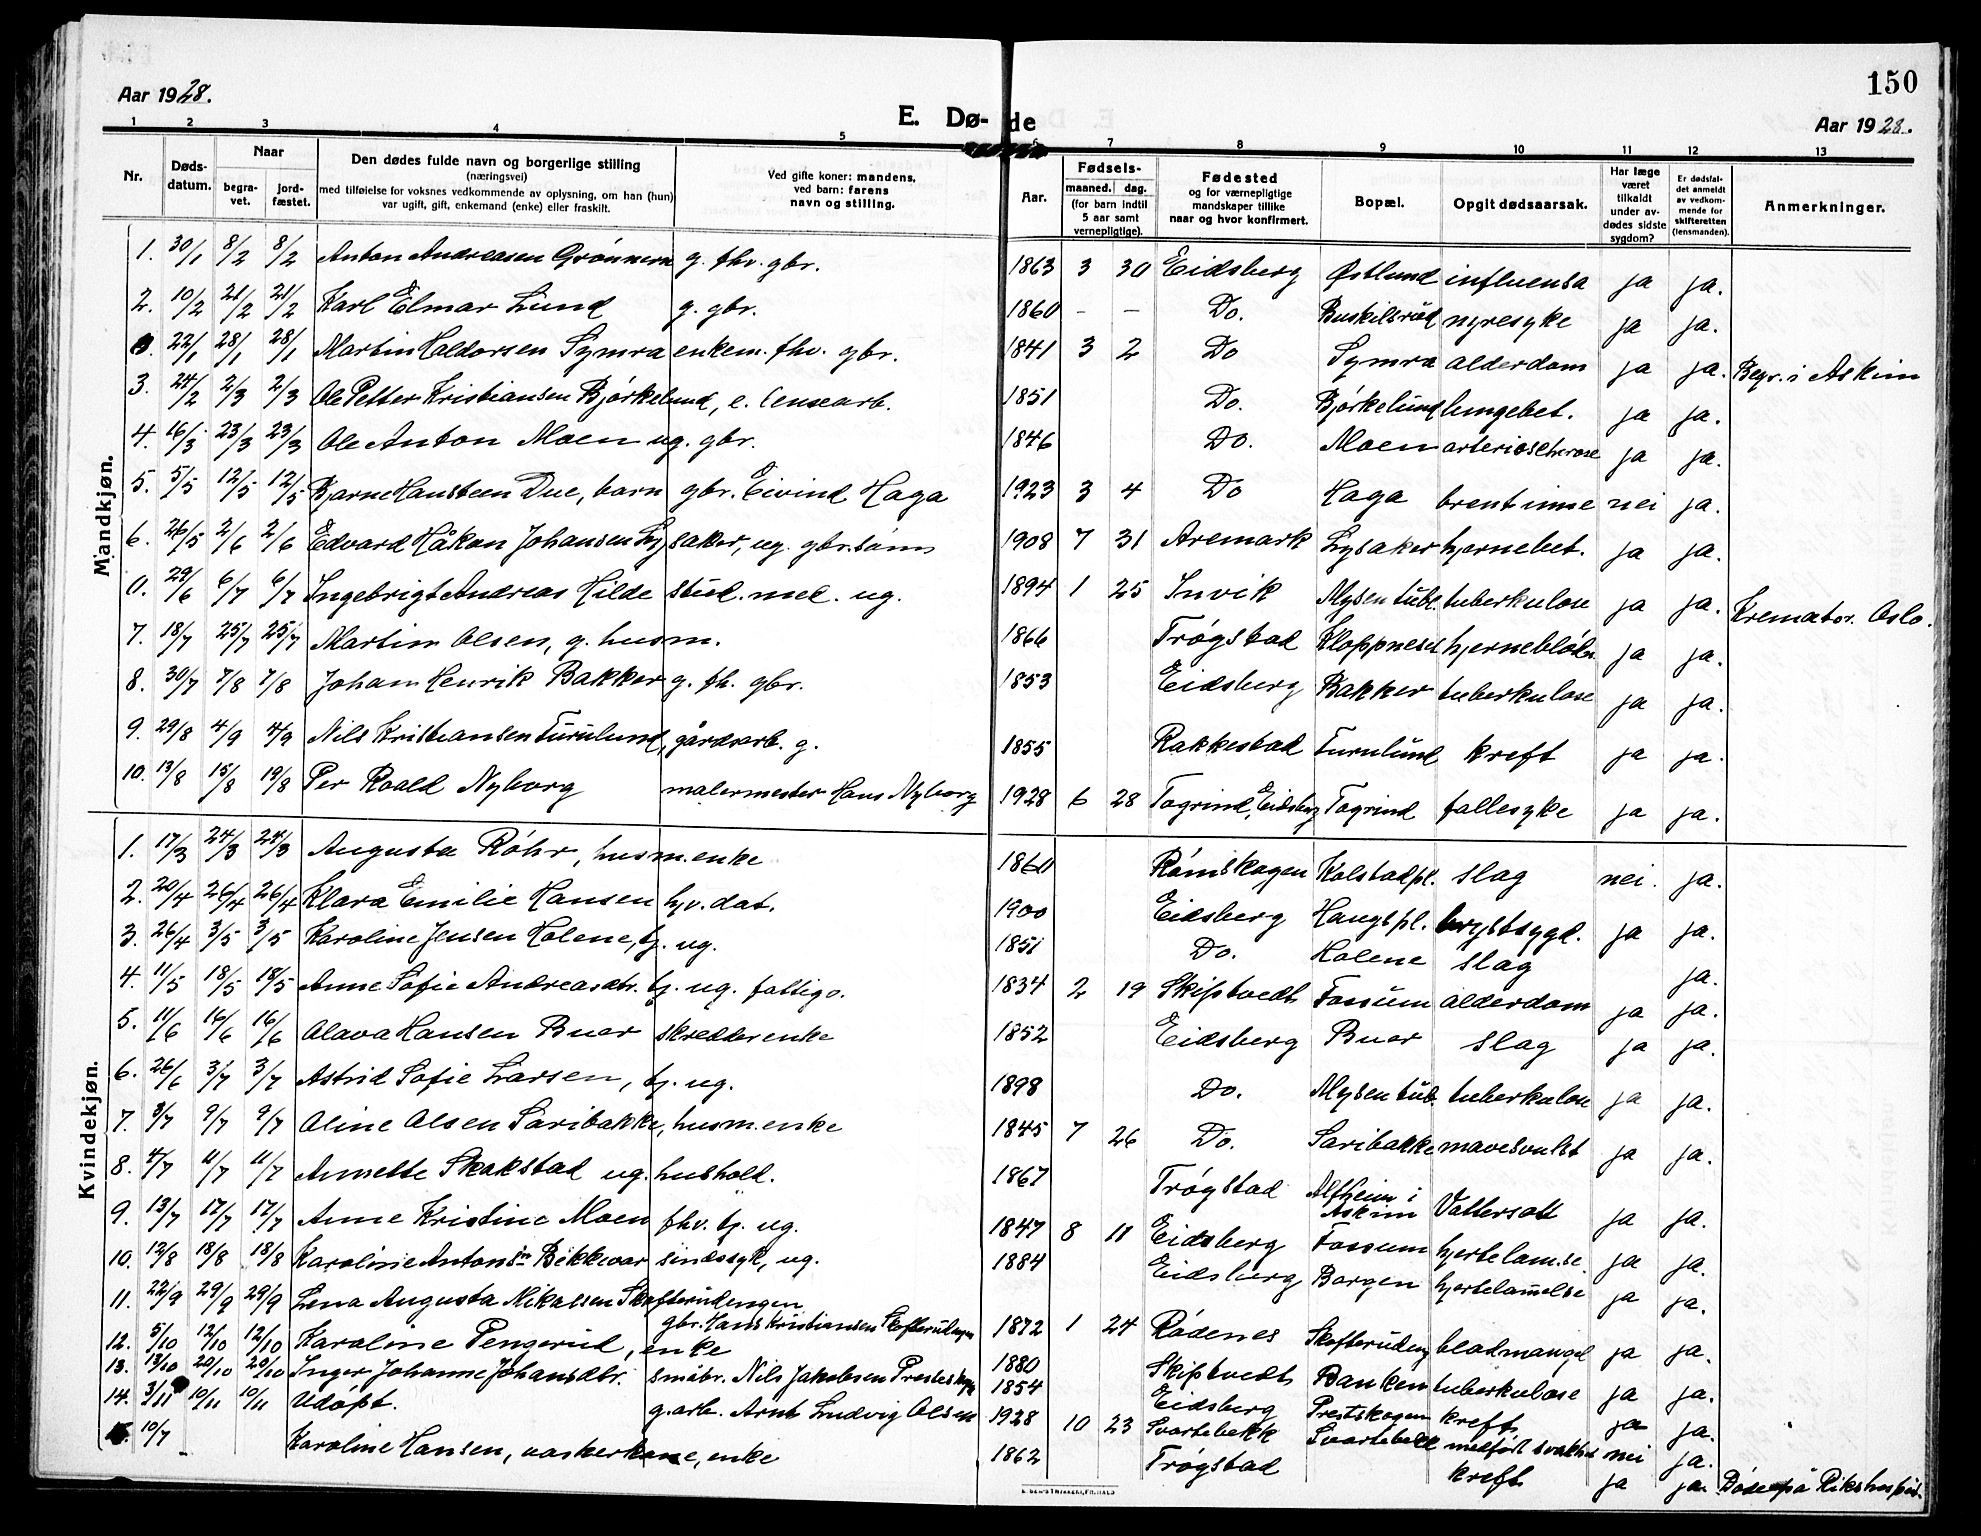 Aar 1928.
150
E. Dø- de
Aar 1928.
1 2 3 4 5 6 7 8 9 10 11 12 13
Nr. Døds-datum. Naar begra-vet. jord-fæstet. Den dødes fulde navn og borgerlige stilling (næringsvei) med tilføielse for voksnes vedkommende av oplysning, om han (hun) var ugift, gift, enkemand (enke) eller fraskilt. Ved gifte koner: mandens, ved barn: farens navn og stilling. Aar. Fødsels- maaned. dag. (for barn indtil 5 aar samt vernepligtige). Fødested og for værnepligtige mandskaper tillike naar og hvor konfirmert. Bopæl. Opgit dødsaarsak. Har læge været tilkaldt under av-dødes sidste sygdom? Er dødsfal-det anmeldt av vedkom-mende for skifteretten (lensmanden). Anmerkninger.
Mandkjøn.
1. 30/1 8/2 8/2 Anton Andreasen Grönnern g. fhv. gbr. 1863 3 30 Eidsberg Østlund influensa ja ja.
2. 10/2 21/2 21/2 Karl Elmar Lund g. gbr. 1860 - - Do. Buskilsrud nyresyke ja ja.
0. 22/1 28/1 28/1 Martin Haldorsen Symra enkem. fhv. gbr. 1841 3 2 Do Symra alderdom ja ja. Begr. i Askim
3. 24/2 2/3 2/3 Ole Petter Kristiansen Bjørkelund, e. lensearb. 1851 Do. Bjørkelund lungebet. ja ja.
4. 16/3 23/3 23/3 Ole Anton Moen ug. gbr. 1846 Do. Moen arteriosclerose ja ja.
5. 5/5 12/5 12/5 Bjarne Hansteen Due, barn gbr. Eivind Haga 1923 3 4 Do Haga brent inne nei ja.
6. 26/5 2/6 2/6 Edvard Håkon Johansen Lysaker, ug. gbr.sönn 1908 7 31 Aremark Lysaker hjernebet. ja ja.
0. 29/6 6/7 6/7 Ingebrigt Andreas Hilde stud. med. ug. 1894 1 25 Invik Mysen tubl. tuberkulose ja ja. Kremator. Oslo.
7. 18/7 25/7 25/7 Martin Olsen, g. husm. 1866 Trøgstad Kloppneset hjerneblødn. ja ja.
8. 30/7 7/8 7/8 Johan Henrik Bakker g. fh. gbr. 1853 Eidsberg Bakker tuberkulose ja ja.
9. 29/8 4/9 4/9 Nils Kristiansen Furulund, gårdsarb. g. 1855 Rakkestad Furulund kreft ja ja.
10. 13/8 15/8 19/8 Per Roald Nyborg malermester Hans Nyborg 1928 6 28 Togrind, Eidsberg Togrind fallesyke ja ja.
Kvindekjøn.
1. 17/3 24/3 24/3 Augusta Röhr, husm.enke 1860 Römskogen Kolstadpl. slag nei. ja.
2. 20/4 26/4 26/4 Klara Emilie Hansen hjv. dat. 1900 Eidsberg Haugspl. brystsygd. ja ja.
3. 26/4 3/5 3/5 Karoline Jensen Holene, tj. ug. 1851 Do. Holene slag ja.
4. 11/5 18/5 18/5 Anne Sofie Andreasdtr. tj. ug. fattigo. 1834 2 19 Skiptvedt Fossum alderdom ja ja.
5. 11/6 16/6 16/6 Olava Hansen Buer skredderenke 1852 Eidsberg Buer slag ja ja.
6. 26/6 3/7 3/7 Astrid Sofie Larsen, tj. ug. 1898 Do. Mysen tub. tuberkulose ja ja.
7. 3/7 9/7 9/7 Oline Olsen Saribakke, husm.enke 1845 7 26 Do. Saribakke mavesvulst ja ja.
8. 4/7 11/7 11/7 Annette Skakstad ug. hushold. 1867 Trøgstad Alfheim i Askim Vattersott ja ja.
9. 13/7 17/7 17/7 Anne Kristine Moen fhv. tj. ug. 1847 8 11 Eidsberg Fossum hjertelam.se. ja ja.
10. 12/8 18/8 18/8 Karoline Antonsn Bekkevar sindssyk, ug. 1884 Eidsberg Borgen hjertelammelse ja ja.
11. 22/9 29/9 29/9 Lena Augusta Mikalsen Skofterudengen gbr. Hans Kristiansen Skofterudengen 1872 1 24 Rødenes Skofterudeng blodmangel ja ja.
12. 5/10 12/10 12/10 Karoline Pengerud, enke 1880 Skiptvedt Banken tuberkulose ja ja.
13. 13/10 20/10 20/10 Inger Johanne Johansdtr. småbr. Nils Jakobsen Presteskogen 1854 Eidsberg Prestskogen kreft ja ja.
14. 3/11 10/11 10/11 Udöpt. g.arb. Arnt Ludvig Olsen 1928 10 23 Svartebekk Svartebekk medfödt svakhet nei ja.
10/7 Karoline Hansen, vaskerkone, enke 1862 Trøgstad kreft ja ja. Döde på Rikshospit.